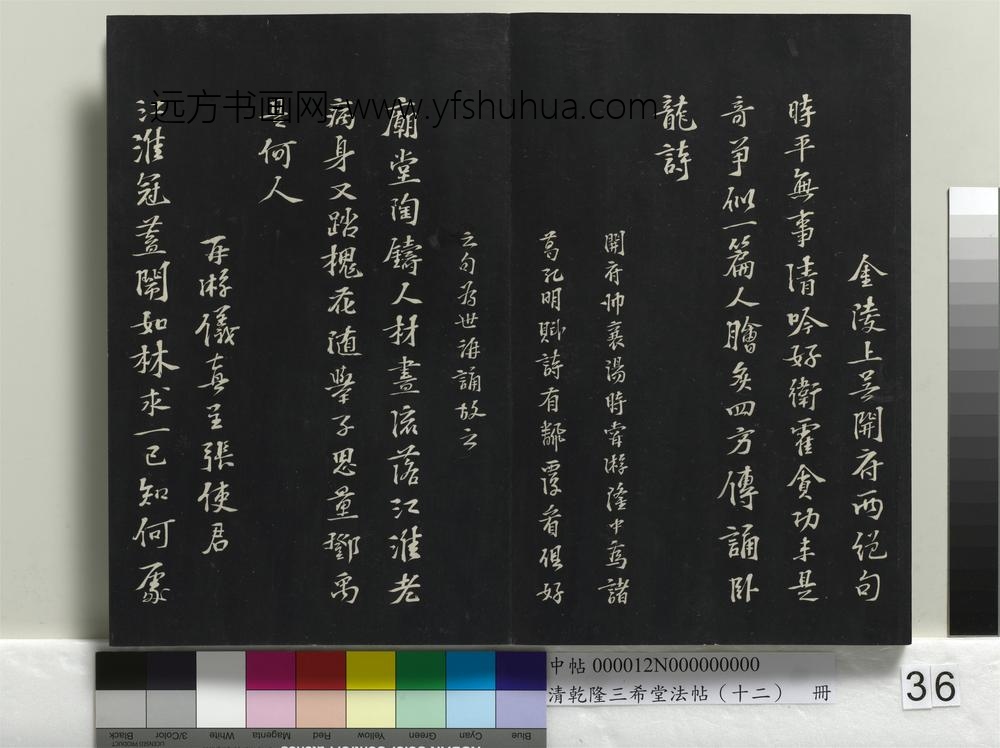 金陵上吳開府兩絕句
時平無事清吟好衛霍貪功未是
奇爭似一篇人膾炙四方傳誦卧
龍詩
開府帥襄陽時嘗游隆中為諸
葛孔明賦詩有翻覆看俱好
之句為世海誦故云
廟堂陶鑄人材盡流落江淮老
病身又踏槐花隨舉子思量鄧禹
是何人
再游儀真呈張使君
江淮冠蓋閙如林求一已知何處
远方书画网 www.yfshuhua.com
中帖 000012N000000000
清乾隆三希堂法帖（十二） 冊
36
Blue
Cyan
Green
Yellow
Red
Magenta
White
3/Color
Black